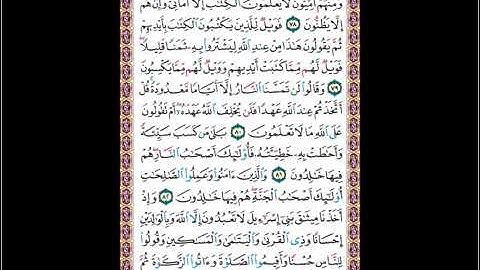 وَمِنْهُمْ أُمِّيُّونَ لَا يَعْلَمُونَ الْكِتَٰبَ إِلَّا أَمَانِىَّ وَإِنْ هُمْ
إِلَّا يَظُنُّونَ ٧٨ فَوَيْلٌ لِّلَّذِينَ يَكْتُبُونَ الْكِتَٰبَ بِأَيْدِيهِمْ
ثُمَّ يَقُولُونَ هَٰذَا مِنْ عِندِ اللَّهِ لِيَشْتَرُوا۟ بِهِۦ ثَمَنًا قَلِيلًا
فَوَيْلٌ لَّهُم مِّمَّا كَتَبَتْ أَيْدِيهِمْ وَوَيْلٌ لَّهُم مِّمَّا يَكْسِبُونَ
٧٩ وَقَالُوا۟ لَن تَمَسَّنَا النَّارُ إِلَّا أَيَّامًا مَّعْدُودَةً قُلْ
أَتَّخَذْتُمْ عِندَ اللَّهِ عَهْدًا فَلَن يُخْلِفَ اللَّهُ عَهْدَهُۥ أَمْ تَقُولُونَ
عَلَى اللَّهِ مَا لَا تَعْلَمُونَ ٨٠ بَلَىٰ مَن كَسَبَ سَيِّئَةً
وَأَحَٰطَتْ بِهِۦ خَطِيٓـَٔتُهُۥ فَأُو۟لَٰٓئِكَ أَصْحَٰبُ النَّارِ هُمْ
فِيهَا خَٰلِدُونَ ٨١ وَالَّذِينَ ءَامَنُوا۟ وَعَمِلُوا۟ الصَّٰلِحَٰتِ
أُو۟لَٰٓئِكَ أَصْحَٰبُ الْجَنَّةِ هُمْ فِيهَا خَٰلِدُونَ ٨٢ وَإِذْ
أَخَذْنَا مِيثَٰقَ بَنِىٓ إِسْرَٰٓءِيلَ لَا تَعْبُدُونَ إِلَّا اللَّهَ وَبِالْوَٰلِدَيْنِ
إِحْسَانًا وَذِى الْقُرْبَىٰ وَالْيَتَٰمَىٰ وَالْمَسَٰكِينِ وَقُولُوا۟
لِلنَّاسِ حُسْنًا وَأَقِيمُوا۟ الصَّلَوٰةَ وَءَاتُوا۟ الزَّكَوٰةَ ثُمَّ